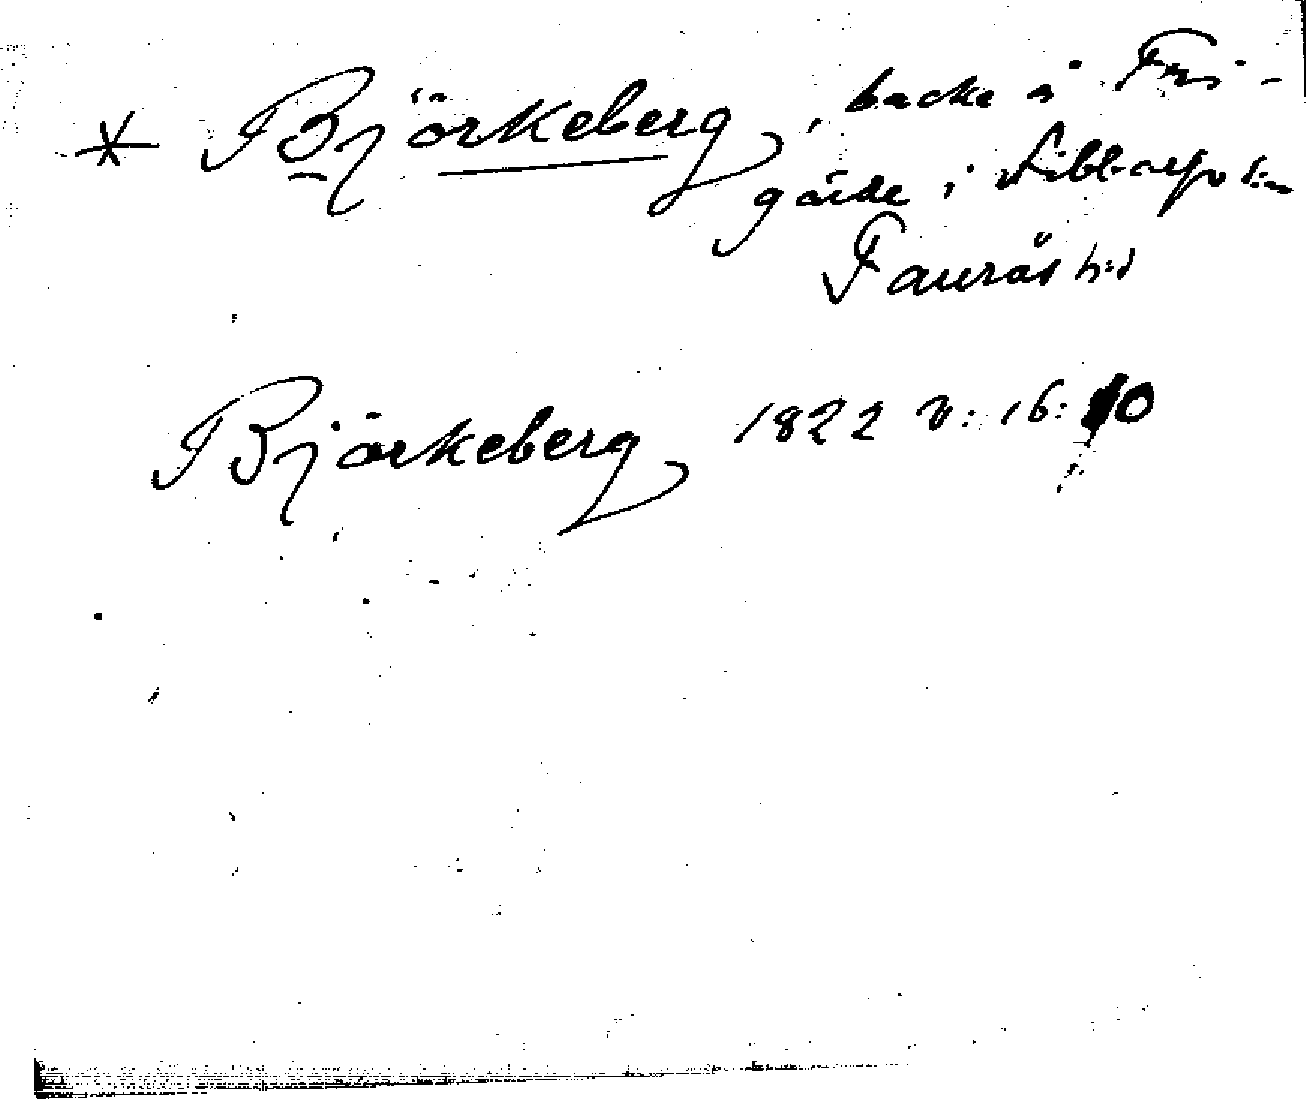 * Björkeberg, backe å Fri-
gärde i Sibbarps sn
Faurås h:d
Björkeberg 1822 v: 16: 10